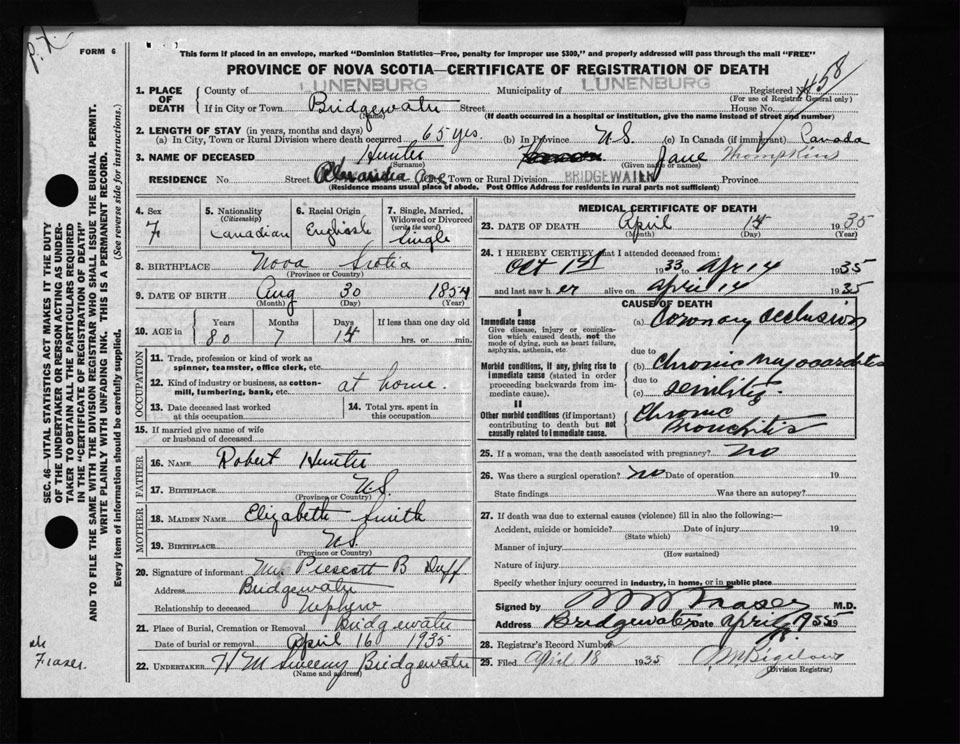 P.X.
FORM 6
This form if placed in an envelope, marked "Dominion Statistics—Free, penalty for improper use $300," and properly addressed will pass through the mail "FREE"
PROVINCE OF NOVA SCOTIA—CERTIFICATE OF REGISTRATION OF DEATH
1. PLACE OF DEATH County of LUNENBURG Municipality of LUNENBURG Registered No. 458
(For use of Registrar General only)
If in City or Town Bridgewater Street House No.
(Name) (If death occurred in a hospital or institution, give the name instead of street and number)
2. LENGTH OF STAY (in years, months and days)
(a) In City, Town or Rural Division where death occurred 65 yrs. (b) In Province N.S. (c) In Canada (if immigrant) Canada
3. NAME OF DECEASED Hunter Jane Thompkins
(Surname) (Given name or names)
RESIDENCE No. Street Alexandra Ave Town or Rural Division BRIDGEWATER Province
(Residence means usual place of abode. Post Office Address for residents in rural parts not sufficient)
4. Sex F
5. Nationality (Citizenship) Canadian
6. Racial Origin English
7. Single, Married, Widowed or Divorced (write the word) Single
8. BIRTHPLACE Nova Scotia
(Province or Country)
9. DATE OF BIRTH Aug 30 1854
(Month) (Day) (Year)
10. AGE in Years 80 Months 7 Days 14 If less than one day old hrs. or min.
OCCUPATION
11. Trade, profession or kind of work as spinner, teamster, office clerk, etc.
12. Kind of industry or business, as cotton-mill, lumbering, bank, etc. at home.
13. Date deceased last worked at this occupation
14. Total yrs. spent in this occupation
15. If married give name of wife or husband of deceased
FATHER
16. NAME Robert Hunter
17. BIRTHPLACE N.S.
(Province or Country)
MOTHER
18. MAIDEN NAME Elizabeth Smith
19. BIRTHPLACE N.S.
(Province or Country)
20. Signature of informant Prescott B Duff
Address Bridgewater
Relationship to deceased Nephew
21. Place of Burial, Cremation or Removal Bridgewater
Date of burial or removal April 16 1935
22. UNDERTAKER H M Sweeny Bridgewater
(Name and address)
MEDICAL CERTIFICATE OF DEATH
23. DATE OF DEATH April 14 1935
(Month) (Day) (Year)
24. I HEREBY CERTIFY that I attended deceased from
Oct 1st 1933 to Apr 14 1935
and last saw her alive on April 14 1935
CAUSE OF DEATH
I
Immediate cause (a) Coronary Occlusion
Give disease, injury or complication which caused death, not the mode of dying, such as heart failure, asphyxia, asthenia, etc.
due to
Morbid conditions, if any, giving rise to immediate cause (stated in order proceeding backwards from immediate cause). (b) Chronic myocarditis
due to
(c) senility.
II
Other morbid conditions (if important) contributing to death but not causally related to immediate cause. Chronic Bronchitis
25. If a woman, was the death associated with pregnancy? no
26. Was there a surgical operation? no Date of operation 19
State findings Was there an autopsy?
27. If death was due to external causes (violence) fill in also the following:—
Accident, suicide or homicide? Date of injury 19
(State which)
Manner of injury
(How sustained)
Nature of injury
Specify whether injury occurred in industry, in home, or in public place
Signed by Fraser M.D.
Address Bridgewater Date April 19
28. Registrar's Record Number
29. Filed April 18 1935 Bigelow
(Division Registrar)
SEC. 46—VITAL STATISTICS ACT MAKES IT THE DUTY
OF THE UNDERTAKER OR PERSON ACTING AS UNDER-
TAKER TO OBTAIN ALL THE PARTICULARS REQUIRED
IN THE "CERTIFICATE OF REGISTRATION OF DEATH"
AND TO FILE THE SAME WITH THE DIVISION REGISTRAR WHO SHALL ISSUE THE BURIAL PERMIT.
WRITE PLAINLY WITH UNFADING INK. THIS IS A PERMANENT RECORD.
Every item of information should be carefully supplied. (See reverse side for instructions.)
Fraser.